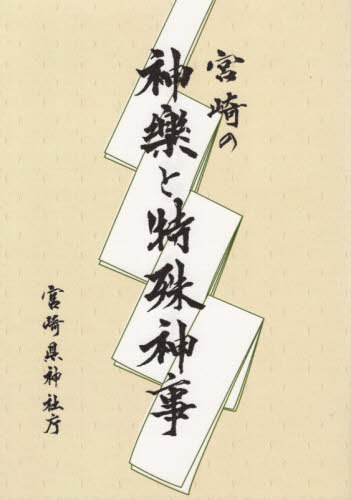 宮崎の
神樂と特殊神事
宮崎県神社庁